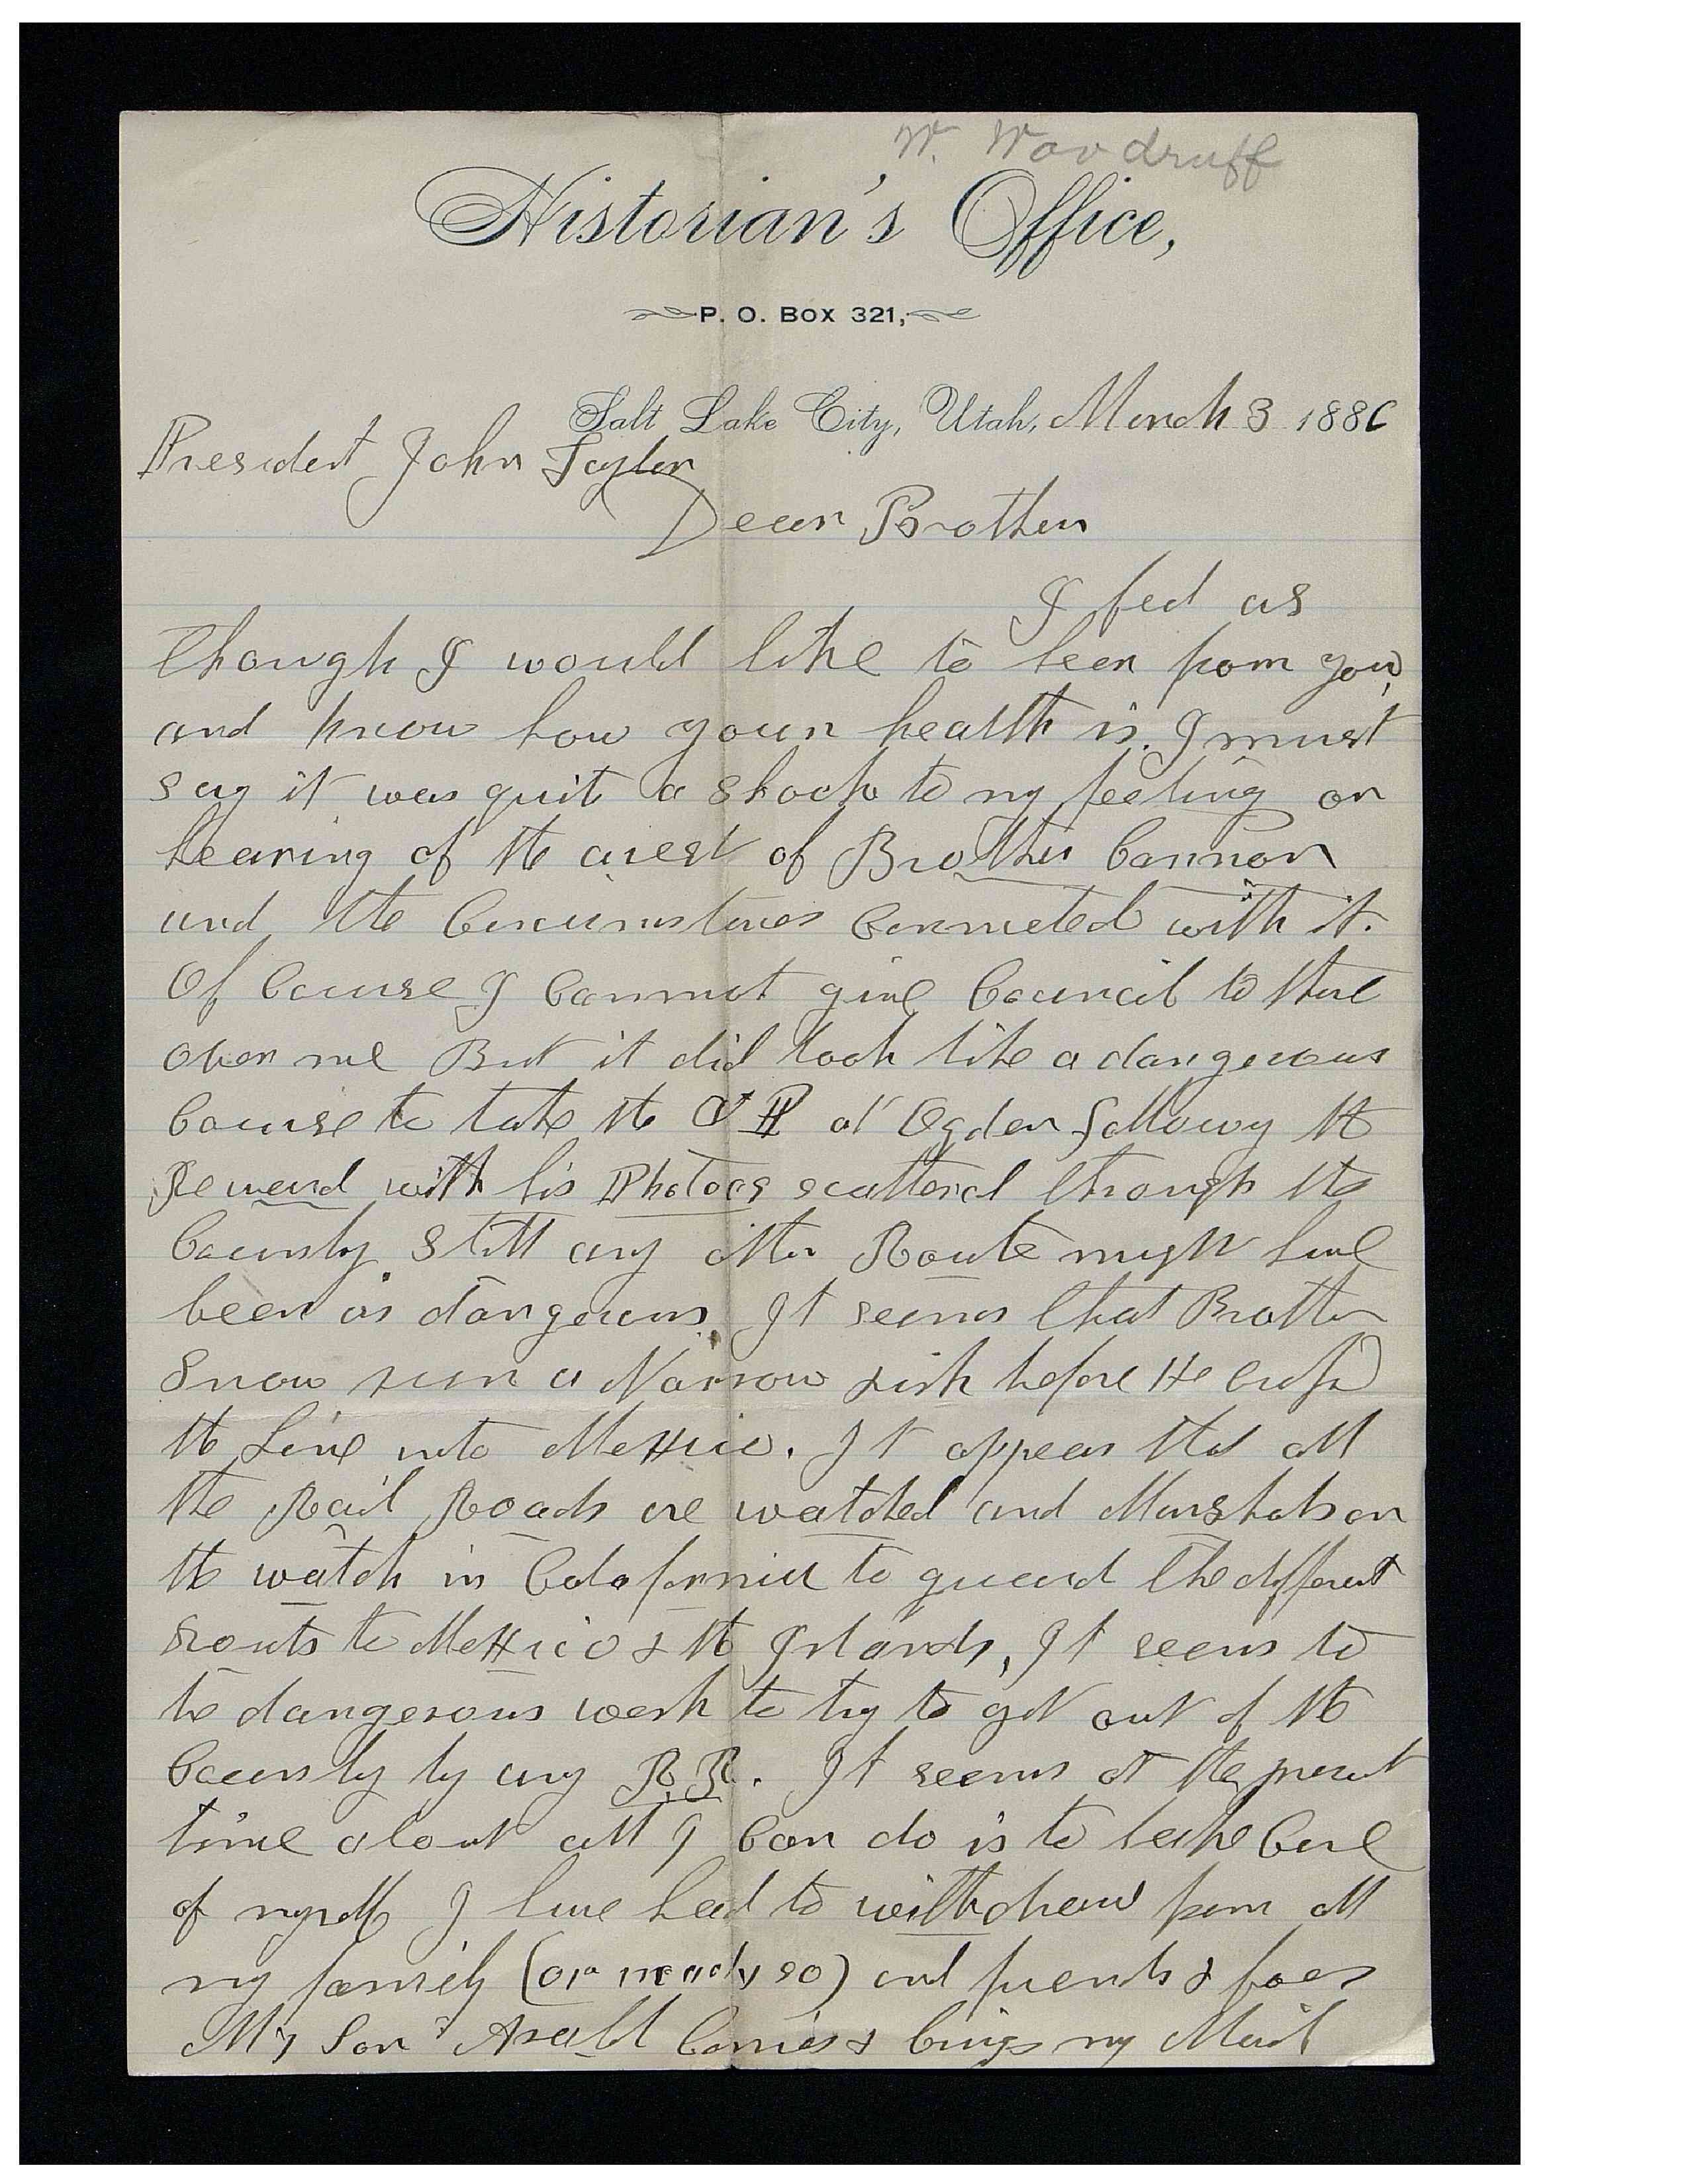 W. Woodruff
Historian's Office,
P. O. Box 321,
Salt Lake City, Utah, March 3 1886
President John Taylor
Dear Brother
I feel as
though I would like to heer from you,
and know how your health is. I must
say it was quit a shock to my feeling on
hearing of the arest of Brother Cannon
and the Circumstances Connected with it.
Of Course I Cannot give Council to those
over me But it did look like a dangerous
Course to take the C P at Ogden following the
Reward with his Photos scattered through the
Country. Still any other Route might have
been as dangerous. It seems that Brother
Snow run a Narrow risk before He Crossd
the Line into Mexico. It appears that all
the Rail Roads are watched and Marshals on
the watch in Calafornia to guard the different
routs to Mexico & the Islands, It seems to
be dangerous work to try to get out of the
Country by any R.R. It seems at the present
time about all I Can do is to take Care
of myself I have had to withdraw from all
my family (or nearly so) and friends & foes
My Son Asahel Carries & brings my Mail